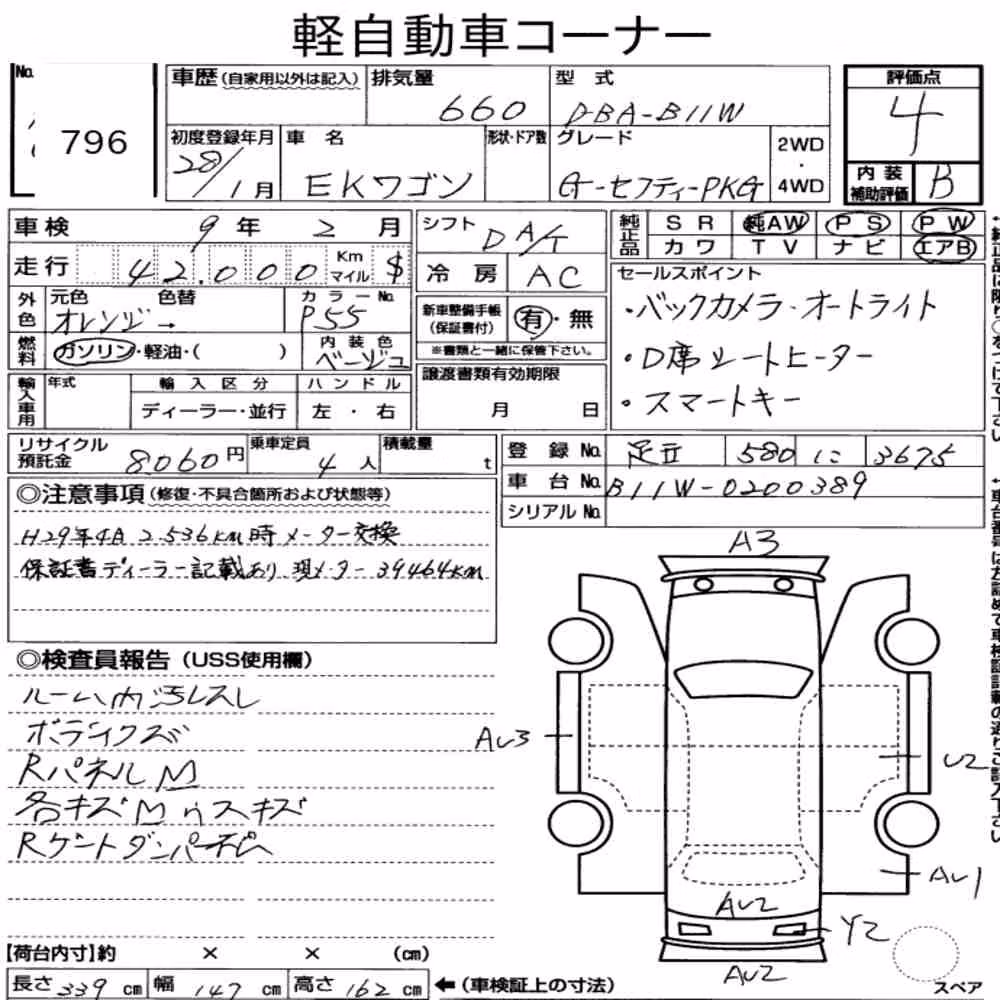 軽自動車コーナー
No. 796
車歴(自家用以外は記入) 排気量 660 型式 DBA-B11W
評価点 4
初度登録年月 28/1月 車名 EKワゴン 形状・ドア数 グレード G-セフティーPKG 2WD・4WD
内装補助評価 B
車検 9年 2月 シフト DA/T 純正品 SR 純AW PS PW
カワ TV ナビ エアB
走行 42.000 Km マイル $ 冷房 AC
セールスポイント
・バックカメラ・オートライト
・D席シートヒーター
・スマートキー
外色 元色 オレンジ→ 色替 カラーNo. P55
新車整備手帳(保証書付) 有・無
※書類と一緒に保管下さい。
燃料 ガソリン・軽油・( ) 内装色 ベージュ
譲渡書類有効期限 月 日
輸入車用 年式 輸入区分 ハンドル
ディーラー・並行 左・右
リサイクル預託金 8060円 乗車定員 4人 積載量 t
登録No. 足立 580 に 3675
車台No. B11W-0200389
シリアルNo.
◎注意事項(修復・不具合箇所および状態等)
H29年4月 2.536km時メーター交換
保証書ディーラー記載あり 現メーター39464km
◎検査員報告(USS使用欄)
ルーム内汚レスレ
Rパネル M
各キズ M ウスキズ
A3
AU3
U2
AU1
AU2
Y2
AU2
【荷台内寸】約 × × (cm)
長さ 339 cm 幅 147 cm 高さ 162 cm ←(車検証上の寸法)
スペア